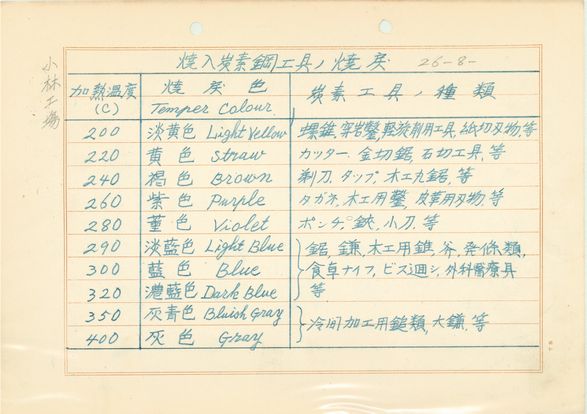 焼入炭素鋼工具ノ焼戻 26-8-
小林工場
加熱温度 (C) 焼戻色 Temper Colour 炭素工具ノ種類
200 淡黄色 Light Yellow 螺錐, 穿岩鑿, 軽旋削用工具, 紙切刃物, 等
220 黄色 Straw カッター, 金切鋸, 石切工具, 等
240 褐色 Brown 剃刀, タップ, 木工丸鋸, 等
260 紫色 Purple タガネ, 木工用鑿, 皮革用刃物, 等
280 菫色 Violet ポンチ, 鋏, 小刀, 等
290 淡藍色 Light Blue 鋸, 鎌, 木工用錐, 斧, 発條類,
300 藍色 Blue 食卓ナイフ, ビス廻シ, 外科醫療具
320 濃藍色 Dark Blue 等
350 灰青色 Bluish Gray 冷間加工用鎚類, 大鎌, 等
400 灰色 Gray